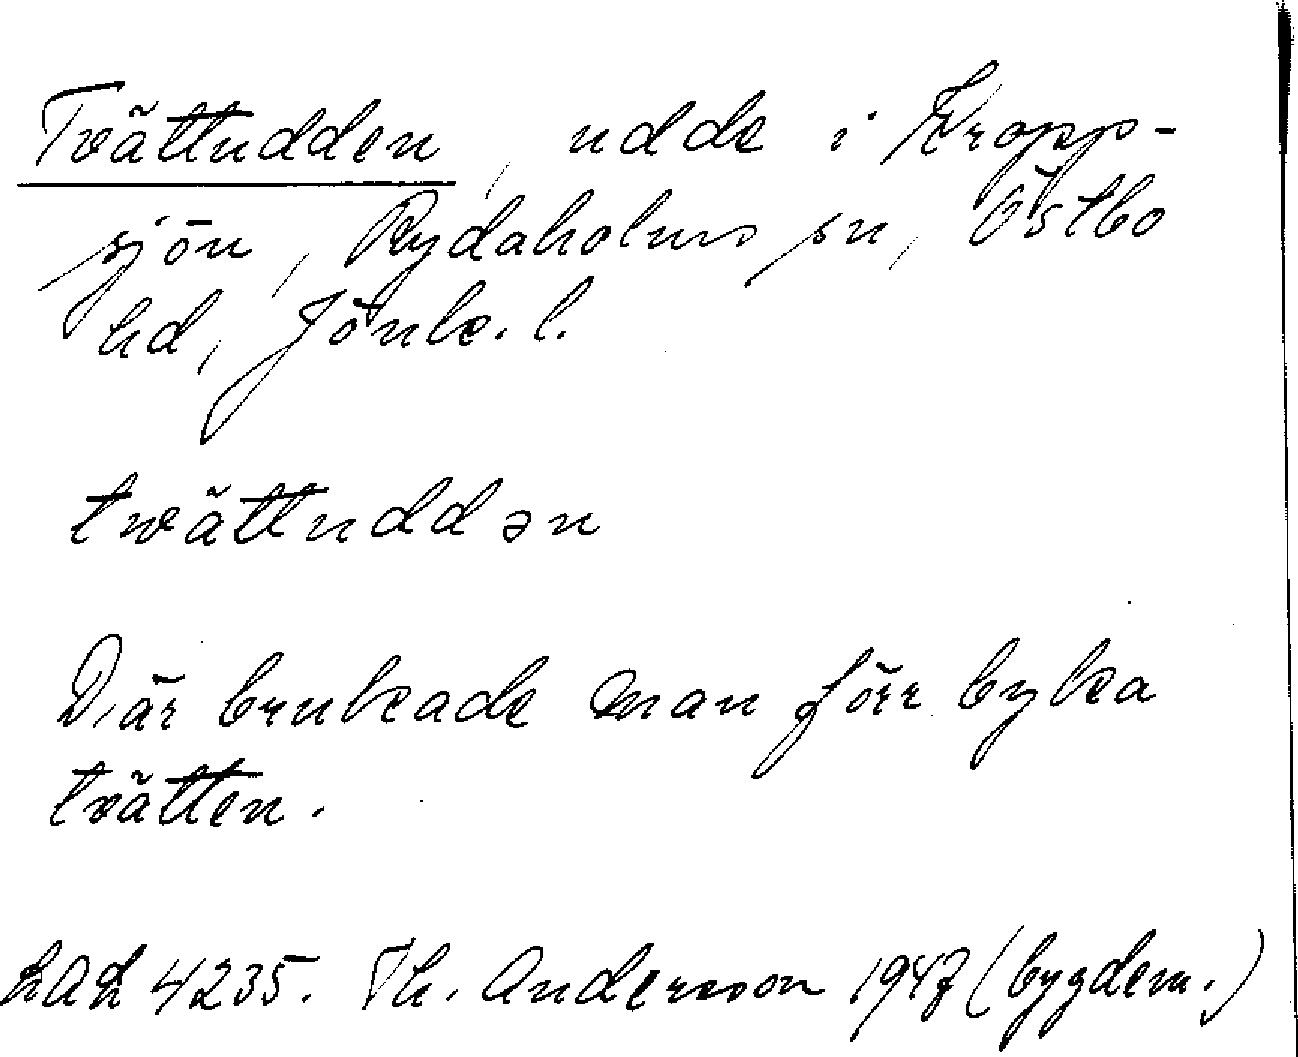 Tvättudden, udde i Kropp-
sjön, Rydaholms sn, Östbo
hd, Jönk. l.
tvättuddən
Där brukade man förr byka
tvätten.
LAL 4235. Th. Andersson 1947 (bygdem.)